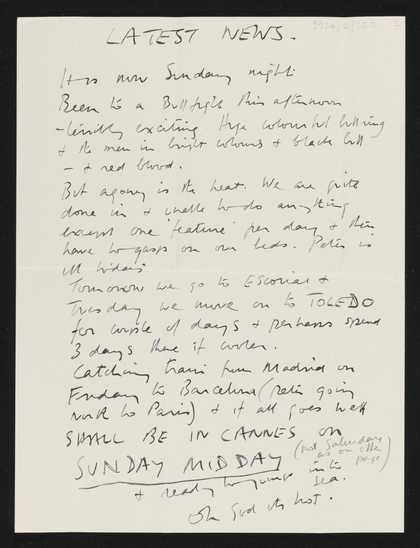 LATEST NEWS.
It is now Sunday night.
Been to a Bullfight this afternoon
- terribly exciting Huge colourful bullring
& the men in bright colours & black bull
- & red blood.
But agony is the heat. We are quite
done in & unable to do anything
except one 'feature' per day & then
have to gasp on our beds. Peter is
ill today.
Tomorrow we go to Escorial &
Tuesday we move on to TOLEDO
for couple of days & perhaps spend
3 days there if cooler.
Catching train from Madrid on
Friday to Barcelona (Peter going
north to Paris) & if all goes well
SHALL BE IN CANNES on
SUNDAY MIDDAY (not Saturday
as on other
page)
& ready to jump into
Sea.
Oh God its hot.